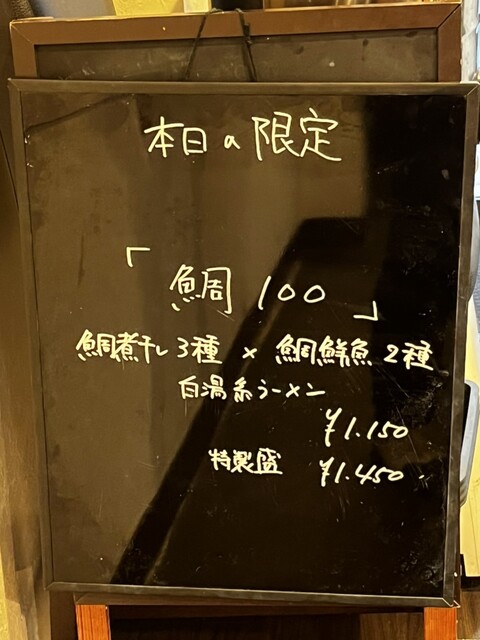 本日の限定
「鯛100」
鯛煮干し3種 × 鯛鮮魚2種
白湯系ラーメン
¥1.150
特製盛 ¥1.450